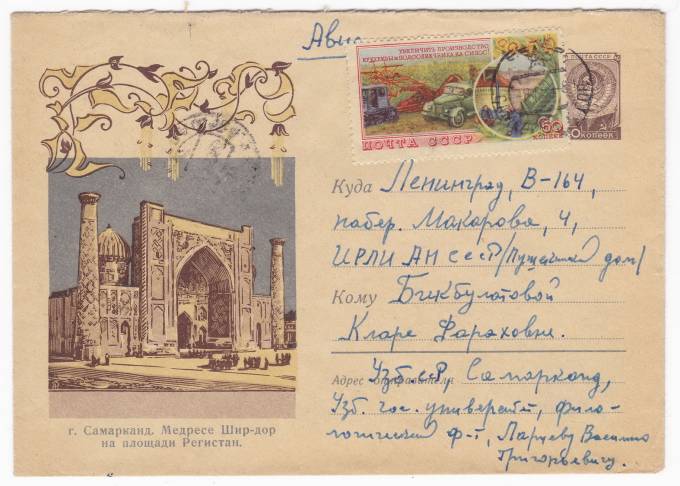 Авиа
УВЕЛИЧИТЬ ПРОИЗВОДСТВО
КУКУРУЗЫ и ПОДСОЛНЕЧНИКА НА СИЛОС!
60
КОПЕЕК
ПОЧТА СССР
ПОЧТА СССР
КОПЕЕК
Куда Ленинград, В-164,
набер. Макарова, 4,
ИРЛИ АН СССР /Пушкинский дом/
Кому Бикбулатовой
Кларе Фараховне.
Адрес отправителя УзбССР, Самарканд,
Узб гос. университ, фило-
логический ф-т, Ларцеву Василию
Григорьевичу.
г. Самарканд. Медресе Шир-дор
на площади Регистан.